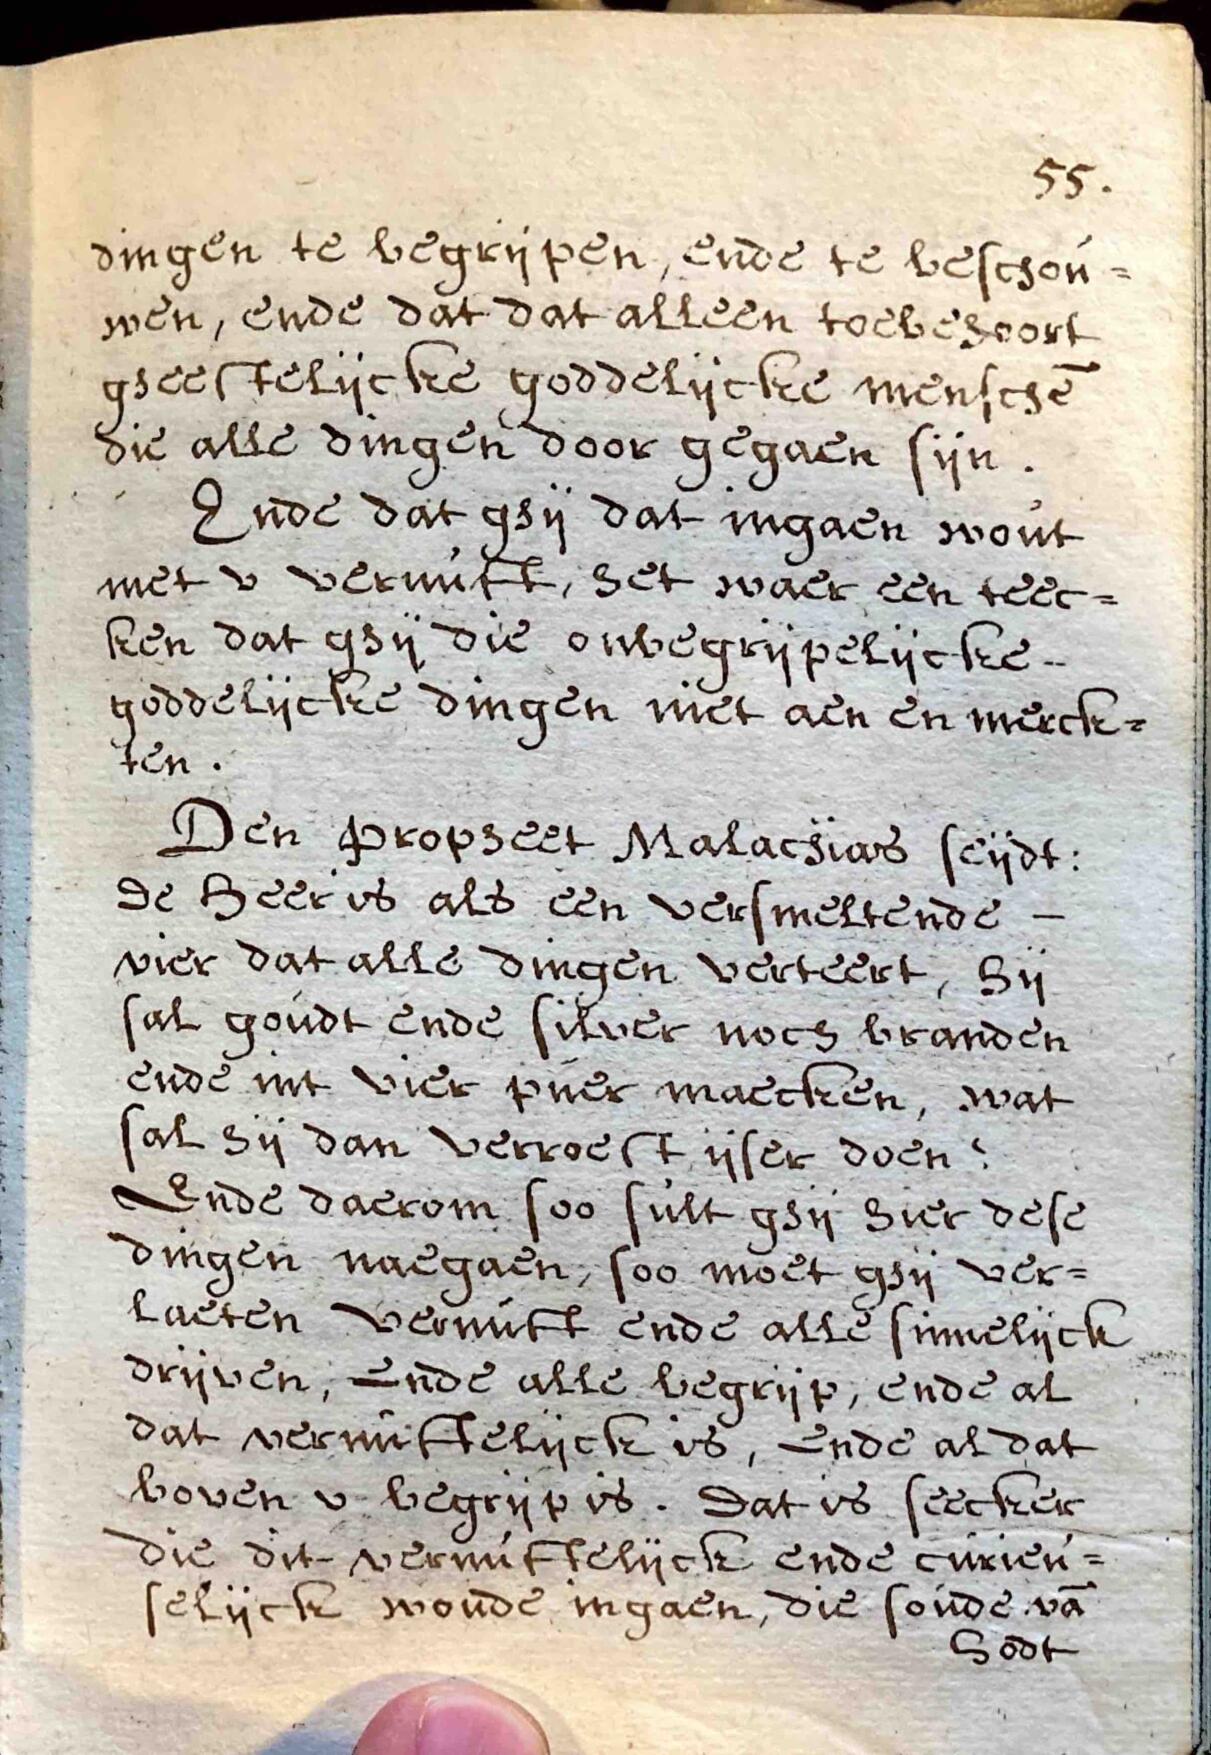 55.
dingen te begrijpen, ende te beschou=
wen, ende dat dat alleen toebehoort
gheestelijcke goddelijcke menschē
die alle dingen door gegaen sijn.
Ende dat ghij dat ingaen wout
met v vernuft, het waer een teec=
ken dat ghij die onbegrijpelijcke
goddelijcke dingen niet aen en merck=
ten.
Den Propheet Malachias seijdt:
de Heer is als een versmeltende –
vier dat alle dingen verteert, hij
sal goudt ende silver noch branden
ende int vier puer maecken, wat
sal hij dan verroest ijser doen?
Ende daerom soo sult ghij hier dese
dingen naegaen, soo moet ghij ver=
laeten vernuft ende alle sinnelijck
drijven, Ende alle begrijp, ende al
dat vernuftelijck is, Ende al dat
boven v begrijp is. Dat is seecker
die dit vernuftelijck ende curieu=
selijck woude ingaen, die soude vā
Godt